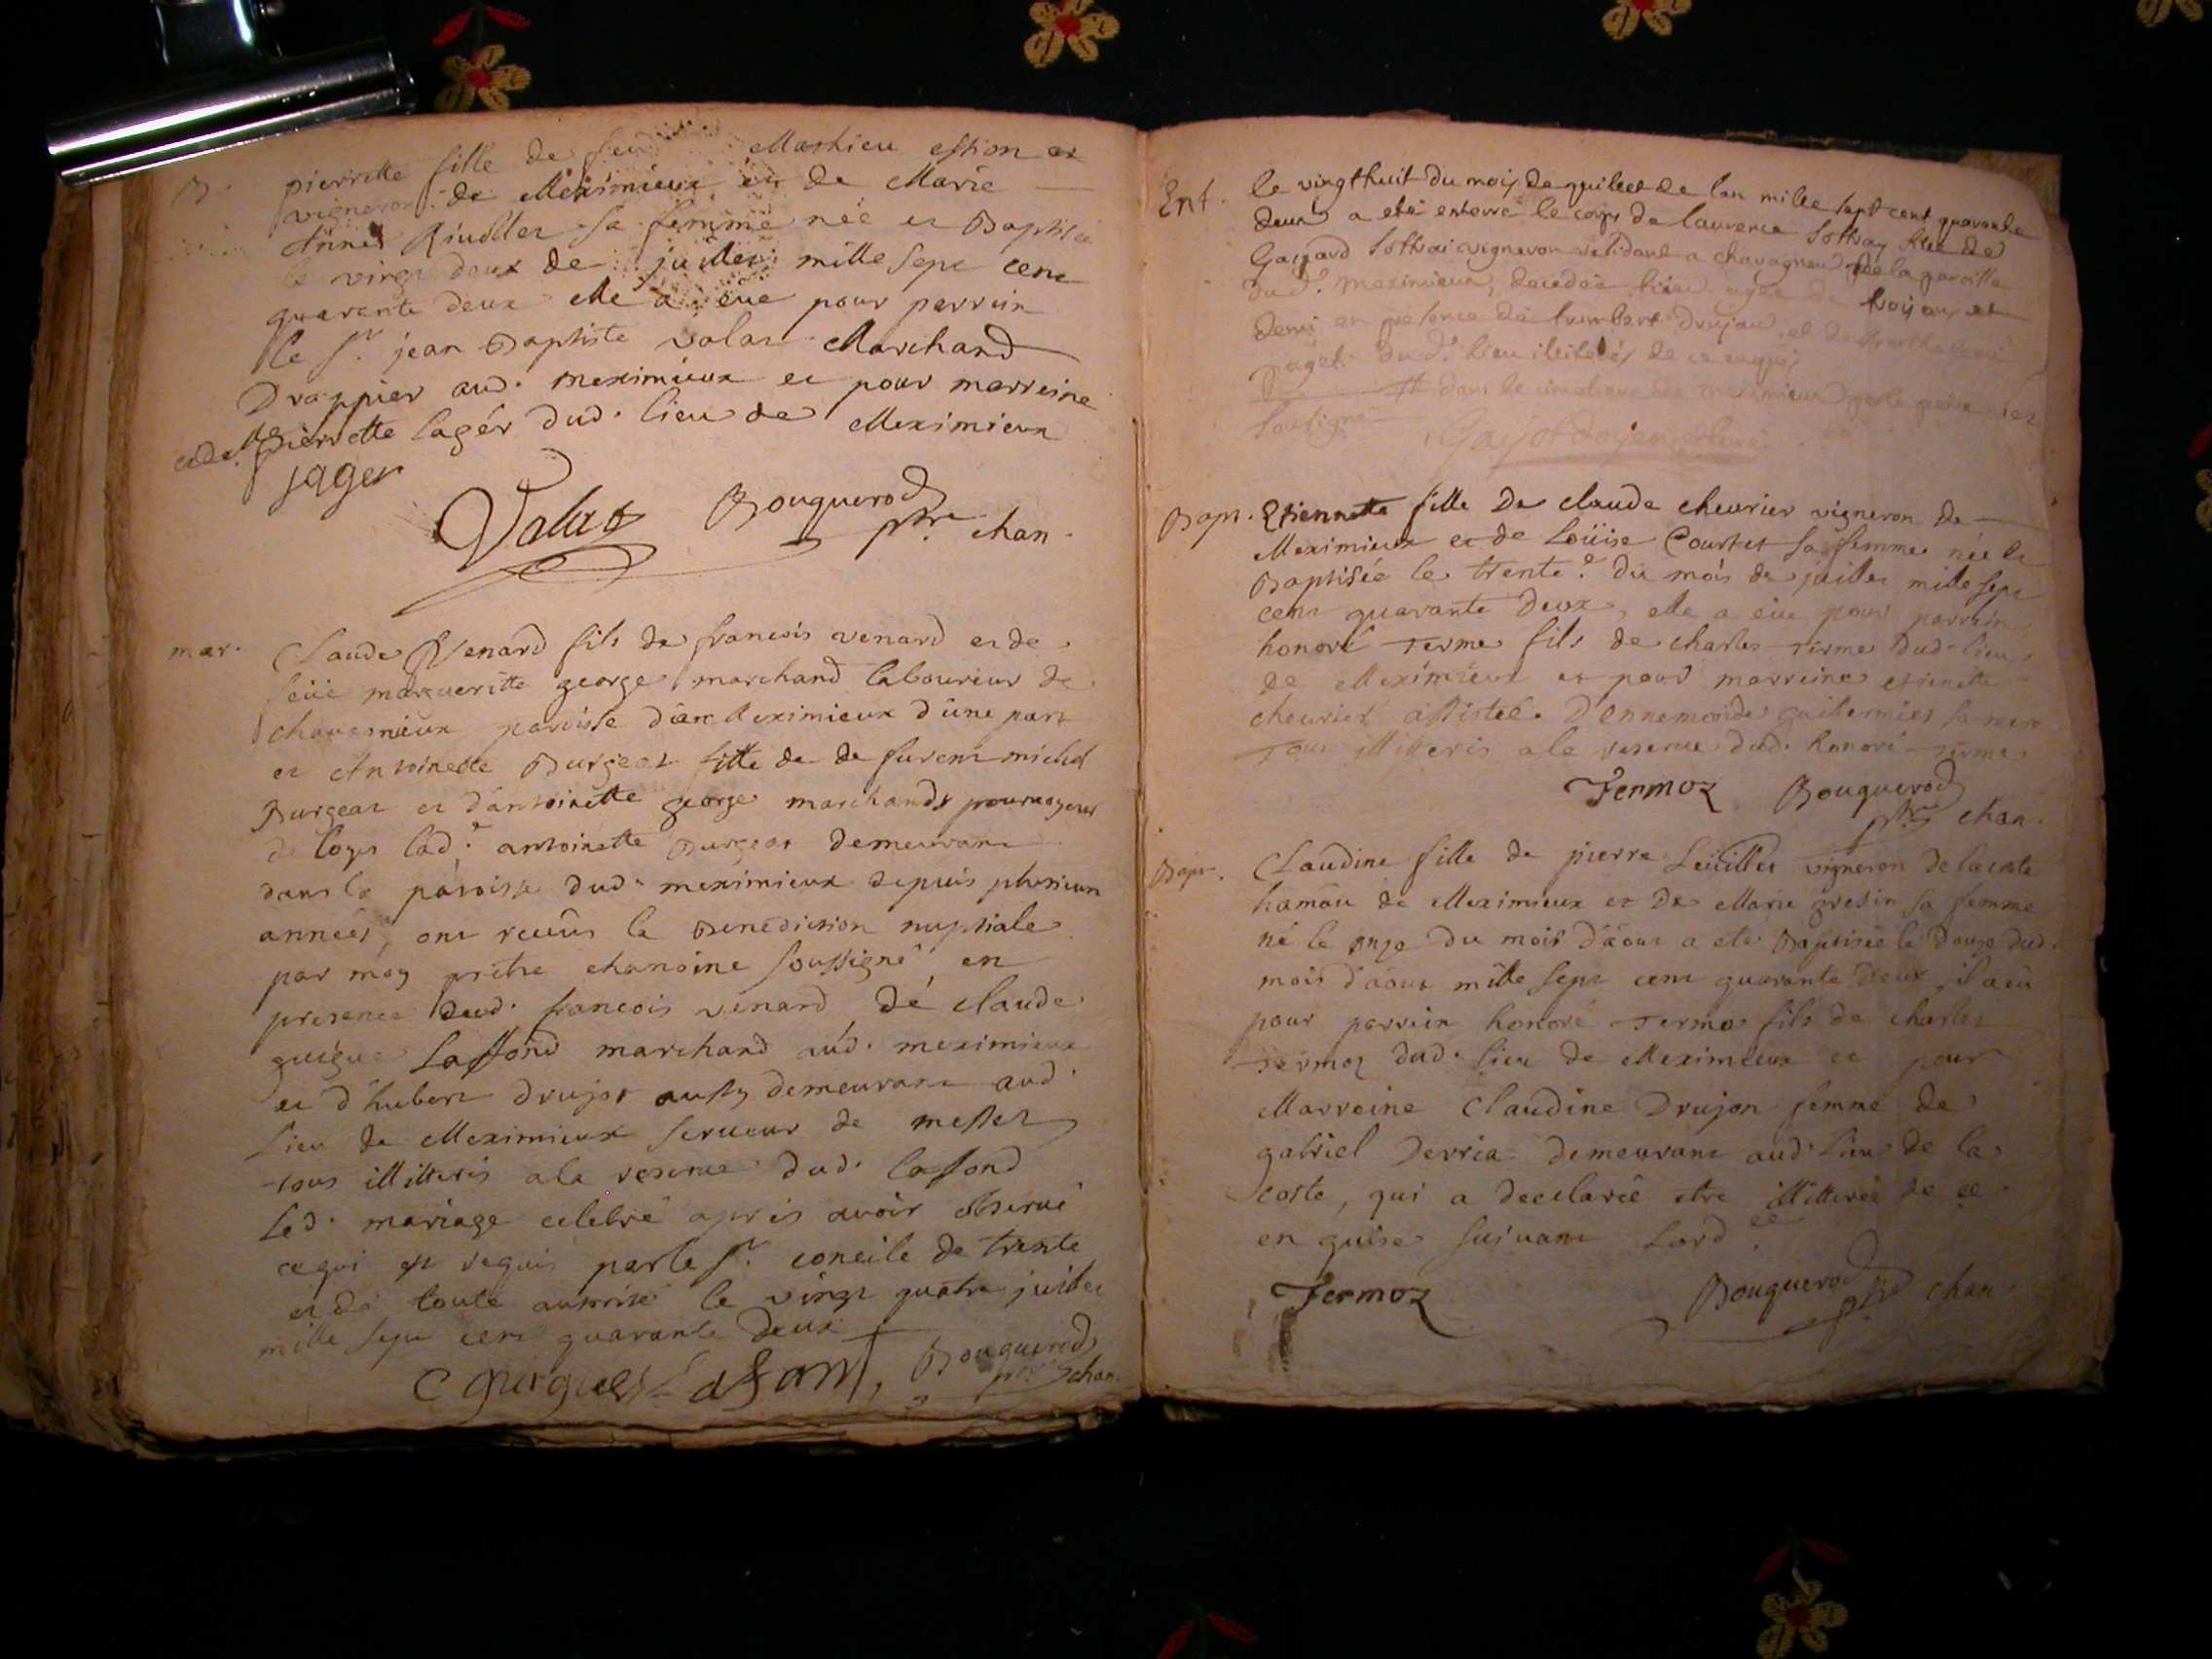 B. pierrette fille de feu Mathieu estion et
vigneron de Meximieux et de Marie
Anne sa femme née et Baptisée
le vingt deux de juillet mille sept cent
quarante deux elle a eüe pour parrein
le Sr. jean Baptiste valat Marchand
Drappier aud. meximieux et pour marreine
Pierrette lager dud. lieu de Meximieux
jager
Valat Bouguerod
ptre chan.
mar. Claude Venard fils de francois venard et de
feüe margueritte george marchand laboureur de
paroisse de Meximieux d'une part
et Antoinette Burgeat fille de de furent michel
Burgeat et d'antoinette george marchands
de loyes lad.e antoinette Burgeat demeurant
dans la paroisse dud. meximieux depuis plusieurs
années, ont recûs la Benediction nuptiale
par moy prêtre chanoine soussigné, en
presence dud. francois venard, dé claude
guigue Laffond marchand aud. meximieux
et d'hubert drujot aussy demeurant aud.
lieu de Meximieux serviteur de
tous illitteris a la reserve dud. laffond
led. mariage celebré après avoir observé
ce qui est requis par le St. concile de trente
et de toute autorité le vingt quatre juillet
mille sept cent quarante deux
C guigues Bouguerod
ptre chan.
Ent. le vingthuit du mois de juillet de lan mille sept cent quarante
deux a eté enterré le corps de laurence sottray fille de
Gaspard sottrai vigneron residant a chavagneu de la paroisse
du d. meximieux, decedée hier agée de trois ans et
demi en présence de humbert drujon, et de
du d. lieu de ce enquis
dans le cimetiere de meximieux par le pretre
soussigné
Bapt. Etiennette fille De claude cheurier vigneron de
Meximieux et de Loüise Courtet sa femme née et
Baptisée le trente.e du mois de juillet mille sept
cent quarante Deux, elle a eüe pour parrein
honoré Terme fils de charles Terme dud. lieu
de Meximieux et pour marreine etienette
cheurier assistée D'ennemonde sa mere
Tous illitteris a la reserve dud. honoré Terme
Fermoz Bouguerod
ptre chan.
Bapt. Claudine fille de pierre vigneron de la coste
hamau de Meximieux et De Marie gresin sa femme
né le onze du mois d'aout a eté Baptisée le douze dud.
mois d'aout mille sept cent quarante deux, il a eü
pour parrein honoré Termo fils de charles
Termoz dud. lieu de Meximieux et pour
Marreine Claudine Drujon femme de
gabriel Derria demeurant aud. lieu de la
coste, qui a declarée etre illitterée de ce
en guise suivant Lord.ce
Fermoz Bouguerod ptre chan.